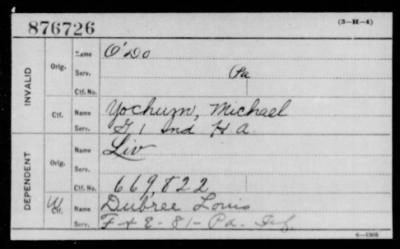 876726 (3-H-4)
INVALID
Orig. Name O'Do
Serv. Pa
Ctf. No.
Ctf. Name Yochum, Michael
Serv. G 1 Ind H A
DEPENDENT
Orig. Name Liv
Serv.
Ctf. No. 669,822
W Ctf. Name Dubree Louis
Serv. F & E - 81 - Pa. Inf.